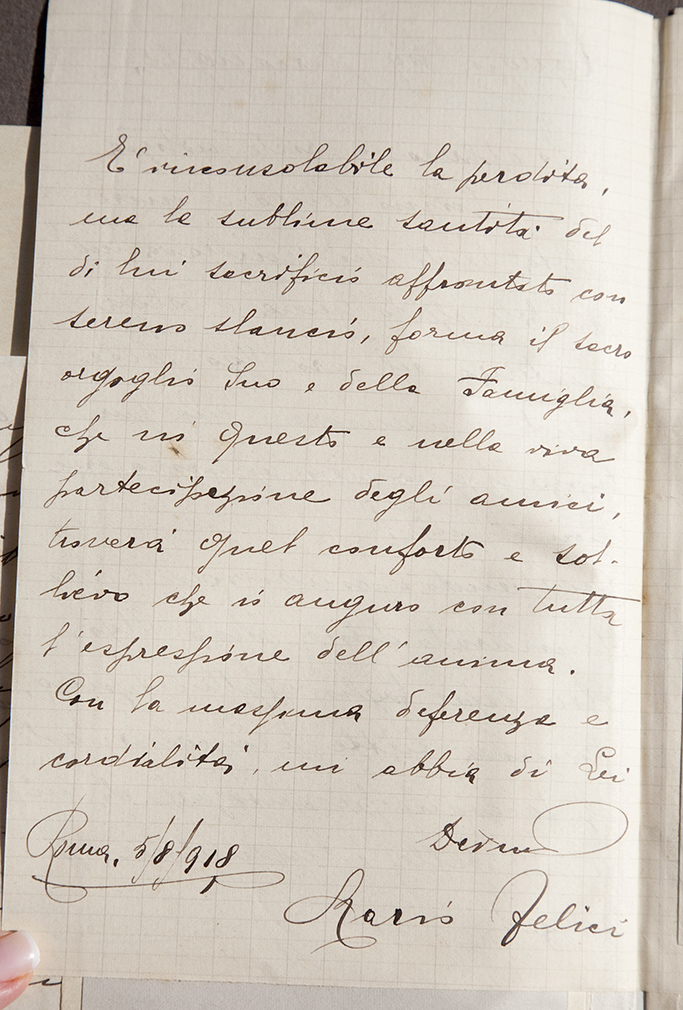 E' inconsolabile la perdita,
ma la sublime santità del
di lui sacrificio affrontato con
sereno slancio, forma il sacro
orgoglio Suo e della Famiglia,
che in questo e nella viva
partecipazione degli amici,
troverà quel conforto e sol-
lievo che io auguro con tutta
l'espressione dell'anima.
Con la massima deferenza e
cordialità, mi abbia di Lei
Dev.mo
Roma, 5/8/918
Mario Felici